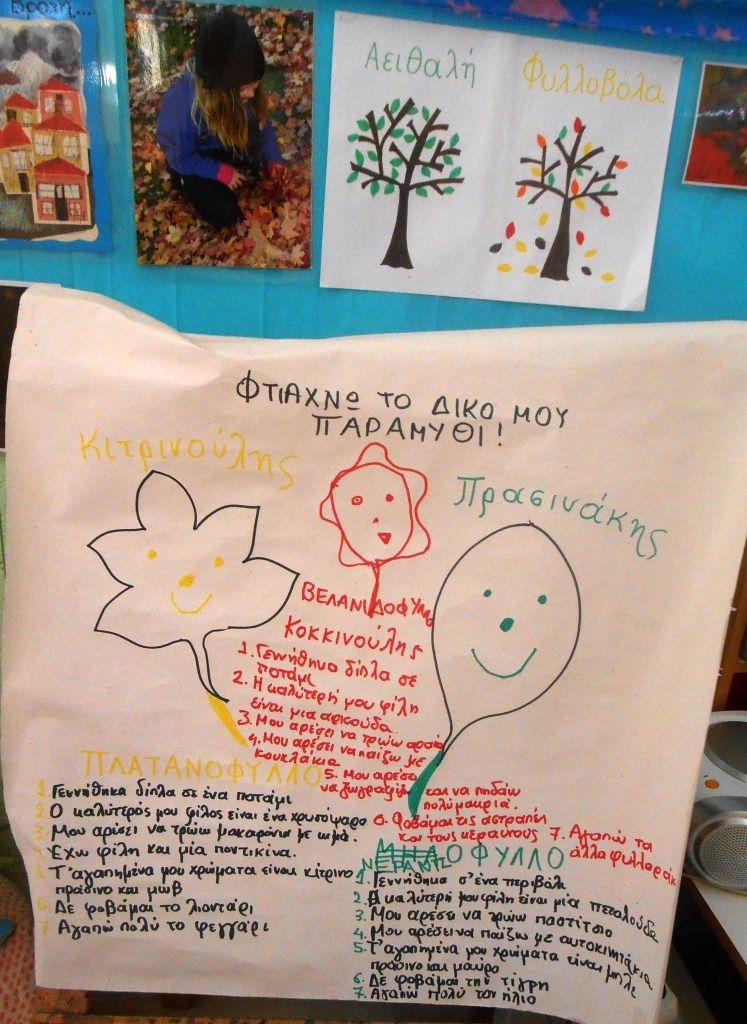 Βροχή...
Αειθαλή
Φυλλοβόλα
ΦΤΙΑΧΝΩ ΤΟ ΔΙΚΟ ΜΟΥ
ΠΑΡΑΜΥΘΙ!
Κιτρινούλης
Πρασινάκης
ΒΕΛΑΝΙΔΟΦΥΛΛΟ
Κοκκινούλης
1. Γεννήθηκα δίπλα σε
ποτάμι
2. Η καλύτερή μου φίλη
είναι μια αρκούδα
3. Μου αρέσει να τρώω
4. Μου αρέσει να παίζω με
κουκλάκια
5. Μου αρέσει
να ζωγραφίζω και να πηδάω
πολύ μακριά.
6. Φοβάμαι τις αστραπές
και τους κεραυνούς 7. Αγαπώ τα
άλλα φυλλαράκ
ΠΛΑΤΑΝΟΦΥΛΛΟ
1 Γεννήθηκα δίπλα σε ένα ποτάμι
2 Ο καλύτερός μου φίλος είναι ένα χρυσόψαρο
3 Μου αρέσει να τρώω μακαρόνια με κιμά.
4 Έχω φίλη και μία ποντικίνα.
5 Τ'αγαπημένα μου χρώματα είναι κίτρινο
πράσινο και μωβ
6 Δε φοβάμαι το λιοντάρι
7 Αγαπώ πολύ το φεγγάρι
ΟΦΥΛΛΟ
1. Γεννήθηκα σ'ένα περιβόλι
2. Η καλύτερή μου φίλη είναι μία πεταλούδα
3. Μου αρέσει να τρώω παστίτσιο
4. Μου αρέσει να παίζω με αυτοκινητάκια
5. Τ'αγαπημένα μου χρώματα είναι μπλε
πράσινο και μαύρο
6. Δε φοβάμαι την τίγρη
7. Αγαπώ πολύ τον ήλιο